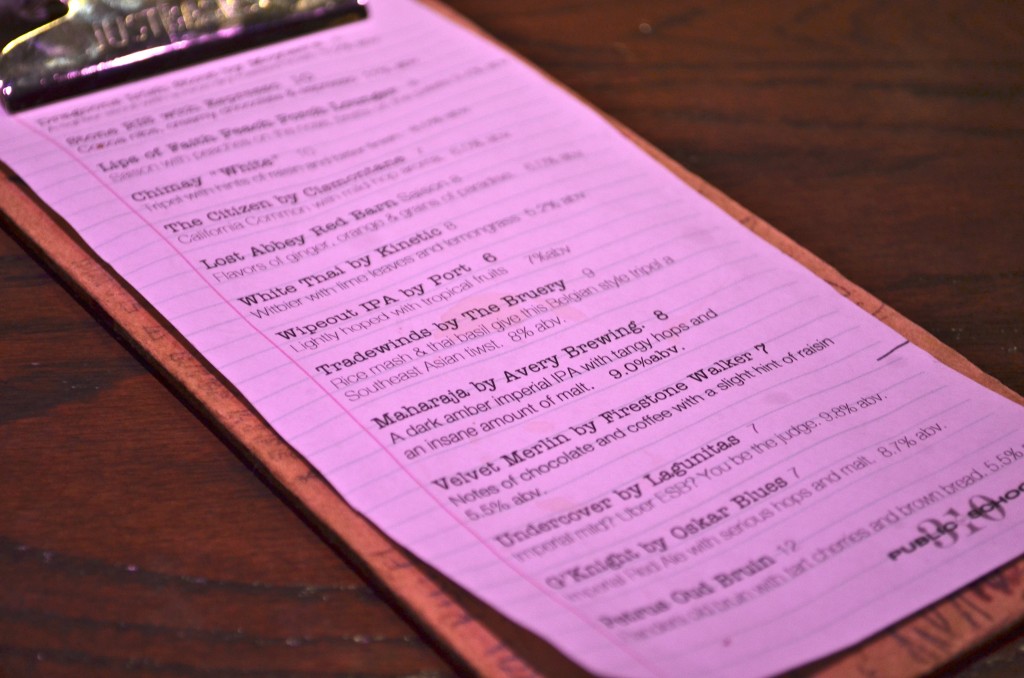 Stone RIS with Espresso 10
creamy chocolate & espresso
Lips of Faith Peach Porch Lounger
Saison with peaches on the nose,
Chimay "White" 10
Tripel with hints of raisin and
The Citizen by Clemontane 7
California Common with mild hop aroma.
Lost Abbey Red Barn Saison 8
Flavors of ginger, orange & grains of paradise.
White Thai by Kinetic 8
Witbier with lime leaves and lemongrass 5.2% abv
Wipeout IPA by Port 6
Lightly hoped with tropical fruits 7%abv
Tradewinds by The Bruery 9
Rice mash & thai basil give this Belgian style tripel a
Southeast Asian tiwst. 8% abv.
Maharaja by Avery Brewing. 8
A dark amber imperial IPA with tangy hops and
an insane amount of malt. 9.0%abv.
Velvet Merlin by Firestone Walker 7
Notes of chocolate and coffee with a slight hint of raisin
5.5% abv.
Undercover by Lagunitas 7
Imperial mild? Uber ESB? You be the judge. 9.8% abv.
G'Knight by Oskar Blues 7
Imperial Red Ale with serious hops and malt. 8.7% abv.
Petrus Oud Bruin 12
Flanders old bruin with tart cherries and brown bread. 5.5%
PUBLIC SCHOO
310